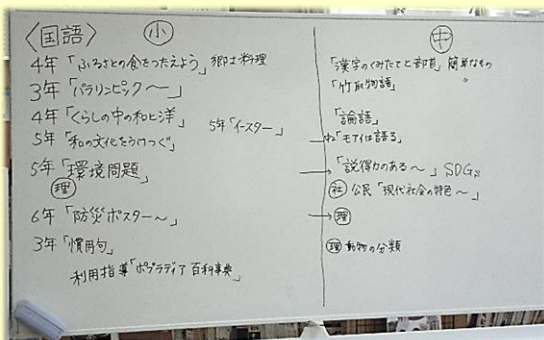 〈国語〉 小
4年「ふるさとの食をつたえよう」郷土料理
3年「パラリンピック〜」
4年「くらしの中の和と洋」
5年「イースター」
5年「和の文化をうけつぐ」
5年「環境問題」
理
6年「防災ポスター〜」
3年「慣用句」
利用指導「ポプラディア 百科事典」
中
「漢字のくみたてと部首」簡単なもの
「竹取物語」
「論語」
「モアイは語る」
→「説得力のある〜」SDGs
社 公民「現代社会の特色〜」
→理
理 動物の分類